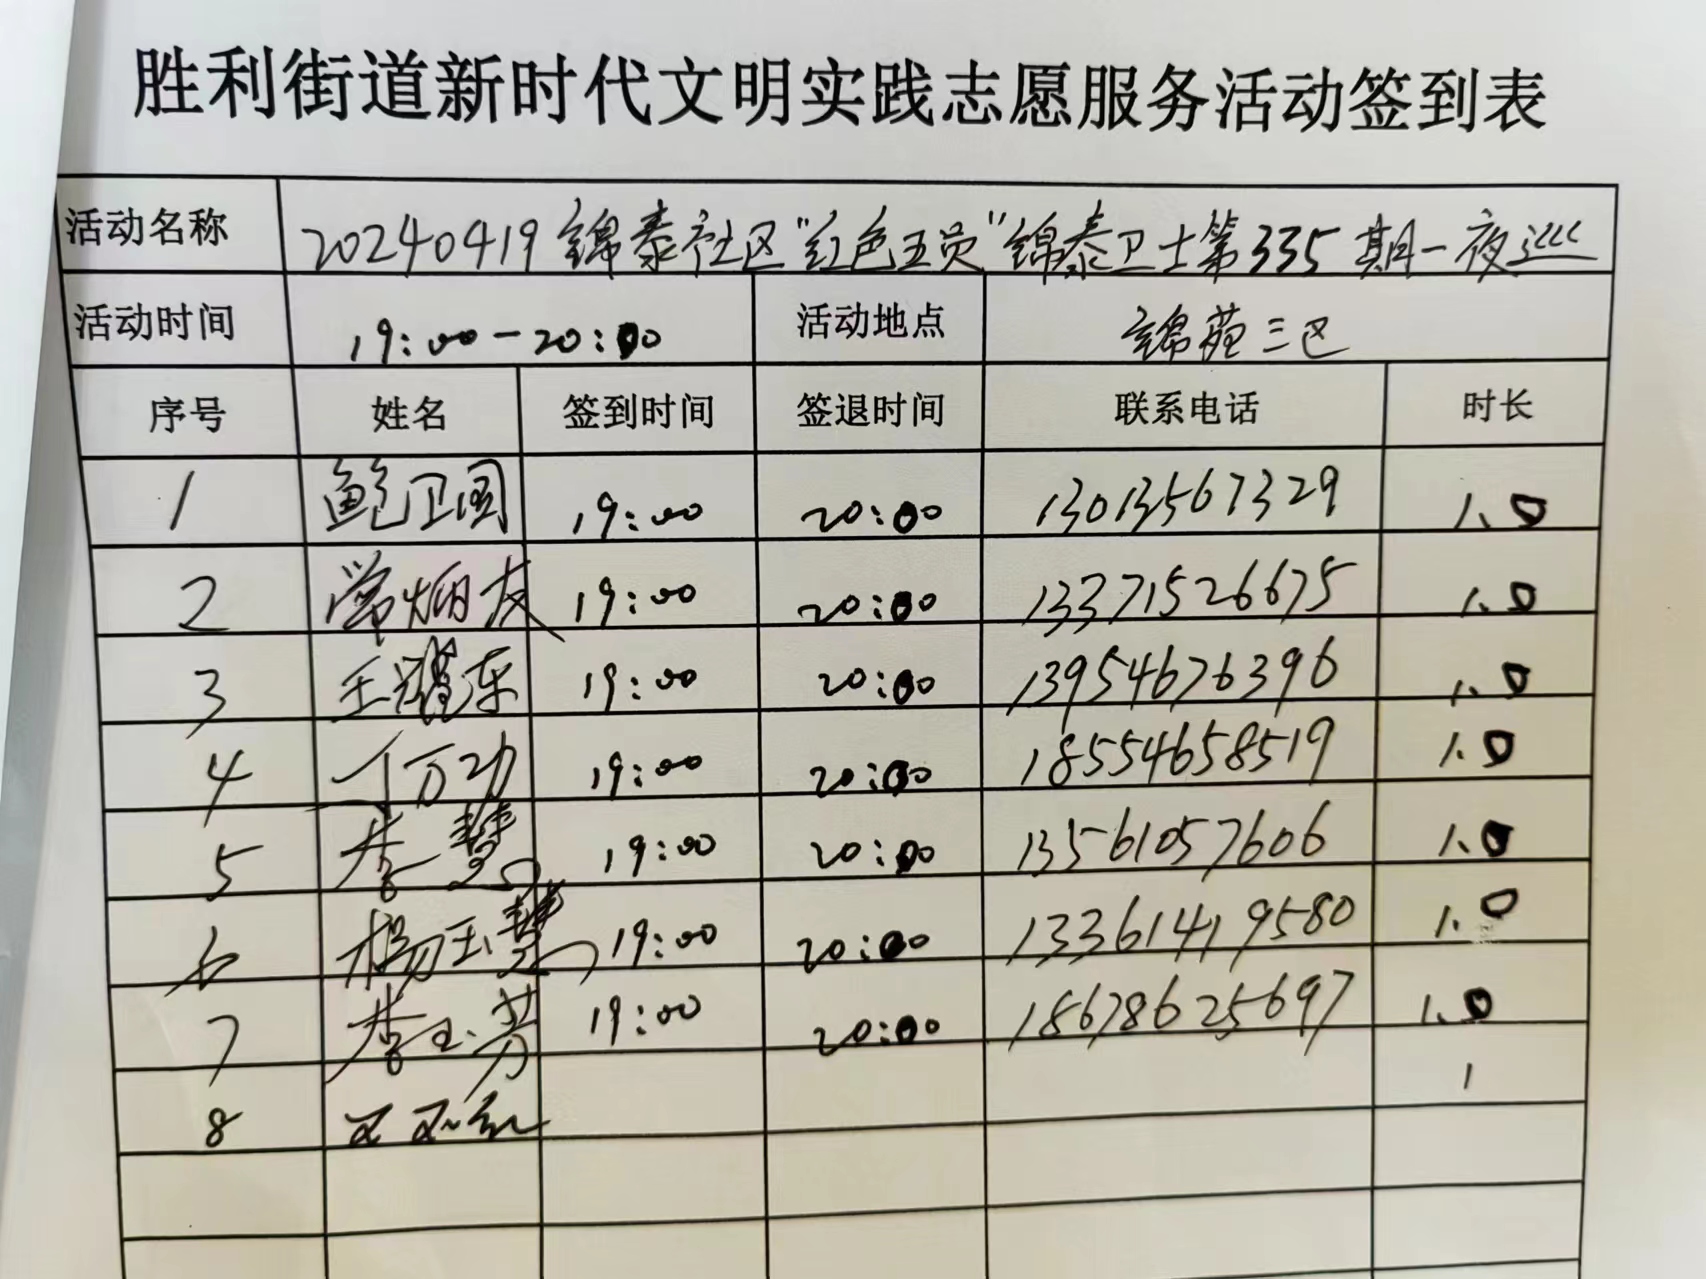 胜利街道新时代文明实践志愿服务活动签到表
活动名称 20240419锦泰社区"红色五员"锦泰卫士第335期一夜巡
活动时间 19:00-20:00 活动地点 锦苑三区
序号 姓名 签到时间 签退时间 联系电话 时长
1 鲍卫国 19:00 20:00 13013567329 1.0
2 常炳友 19:00 20:00 13371526675 1.0
3 王耀东 19:00 20:00 13954676396 1.0
4 丁万功 19:00 20:00 18554658519 1.0
5 李慧 19:00 20:00 13561057606 1.0
6 杨玉慧 19:00 20:00 13361419580 1.0
7 李玉芳 19:00 20:00 18678625697 1.0
8 王玉红 1